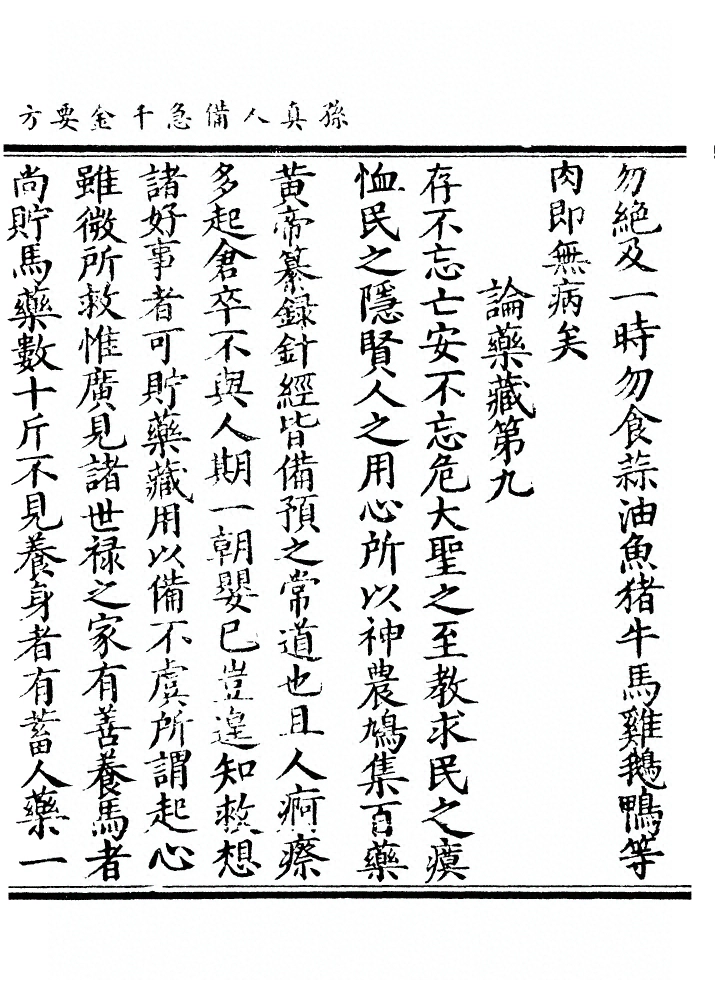 孫真人備急千金要方
勿絶及一時勿食蒜油魚猪牛馬雞鵝鴨等
肉即無病矣
論藥藏第九
存不忘亡安不忘危大聖之至教求民之瘼
恤民之隱賢人之用心所以神農鳩集百藥
黄帝纂録針經皆備預之常道也且人痾瘵
多起倉卒不與人期一朝嬰已豈遑知救想
諸好事者可貯藥藏用以備不虞所謂起心
雖微所救惟廣見諸世禄之家有善養馬者
尚貯馬藥數十斤不見養身者有蓄人藥一